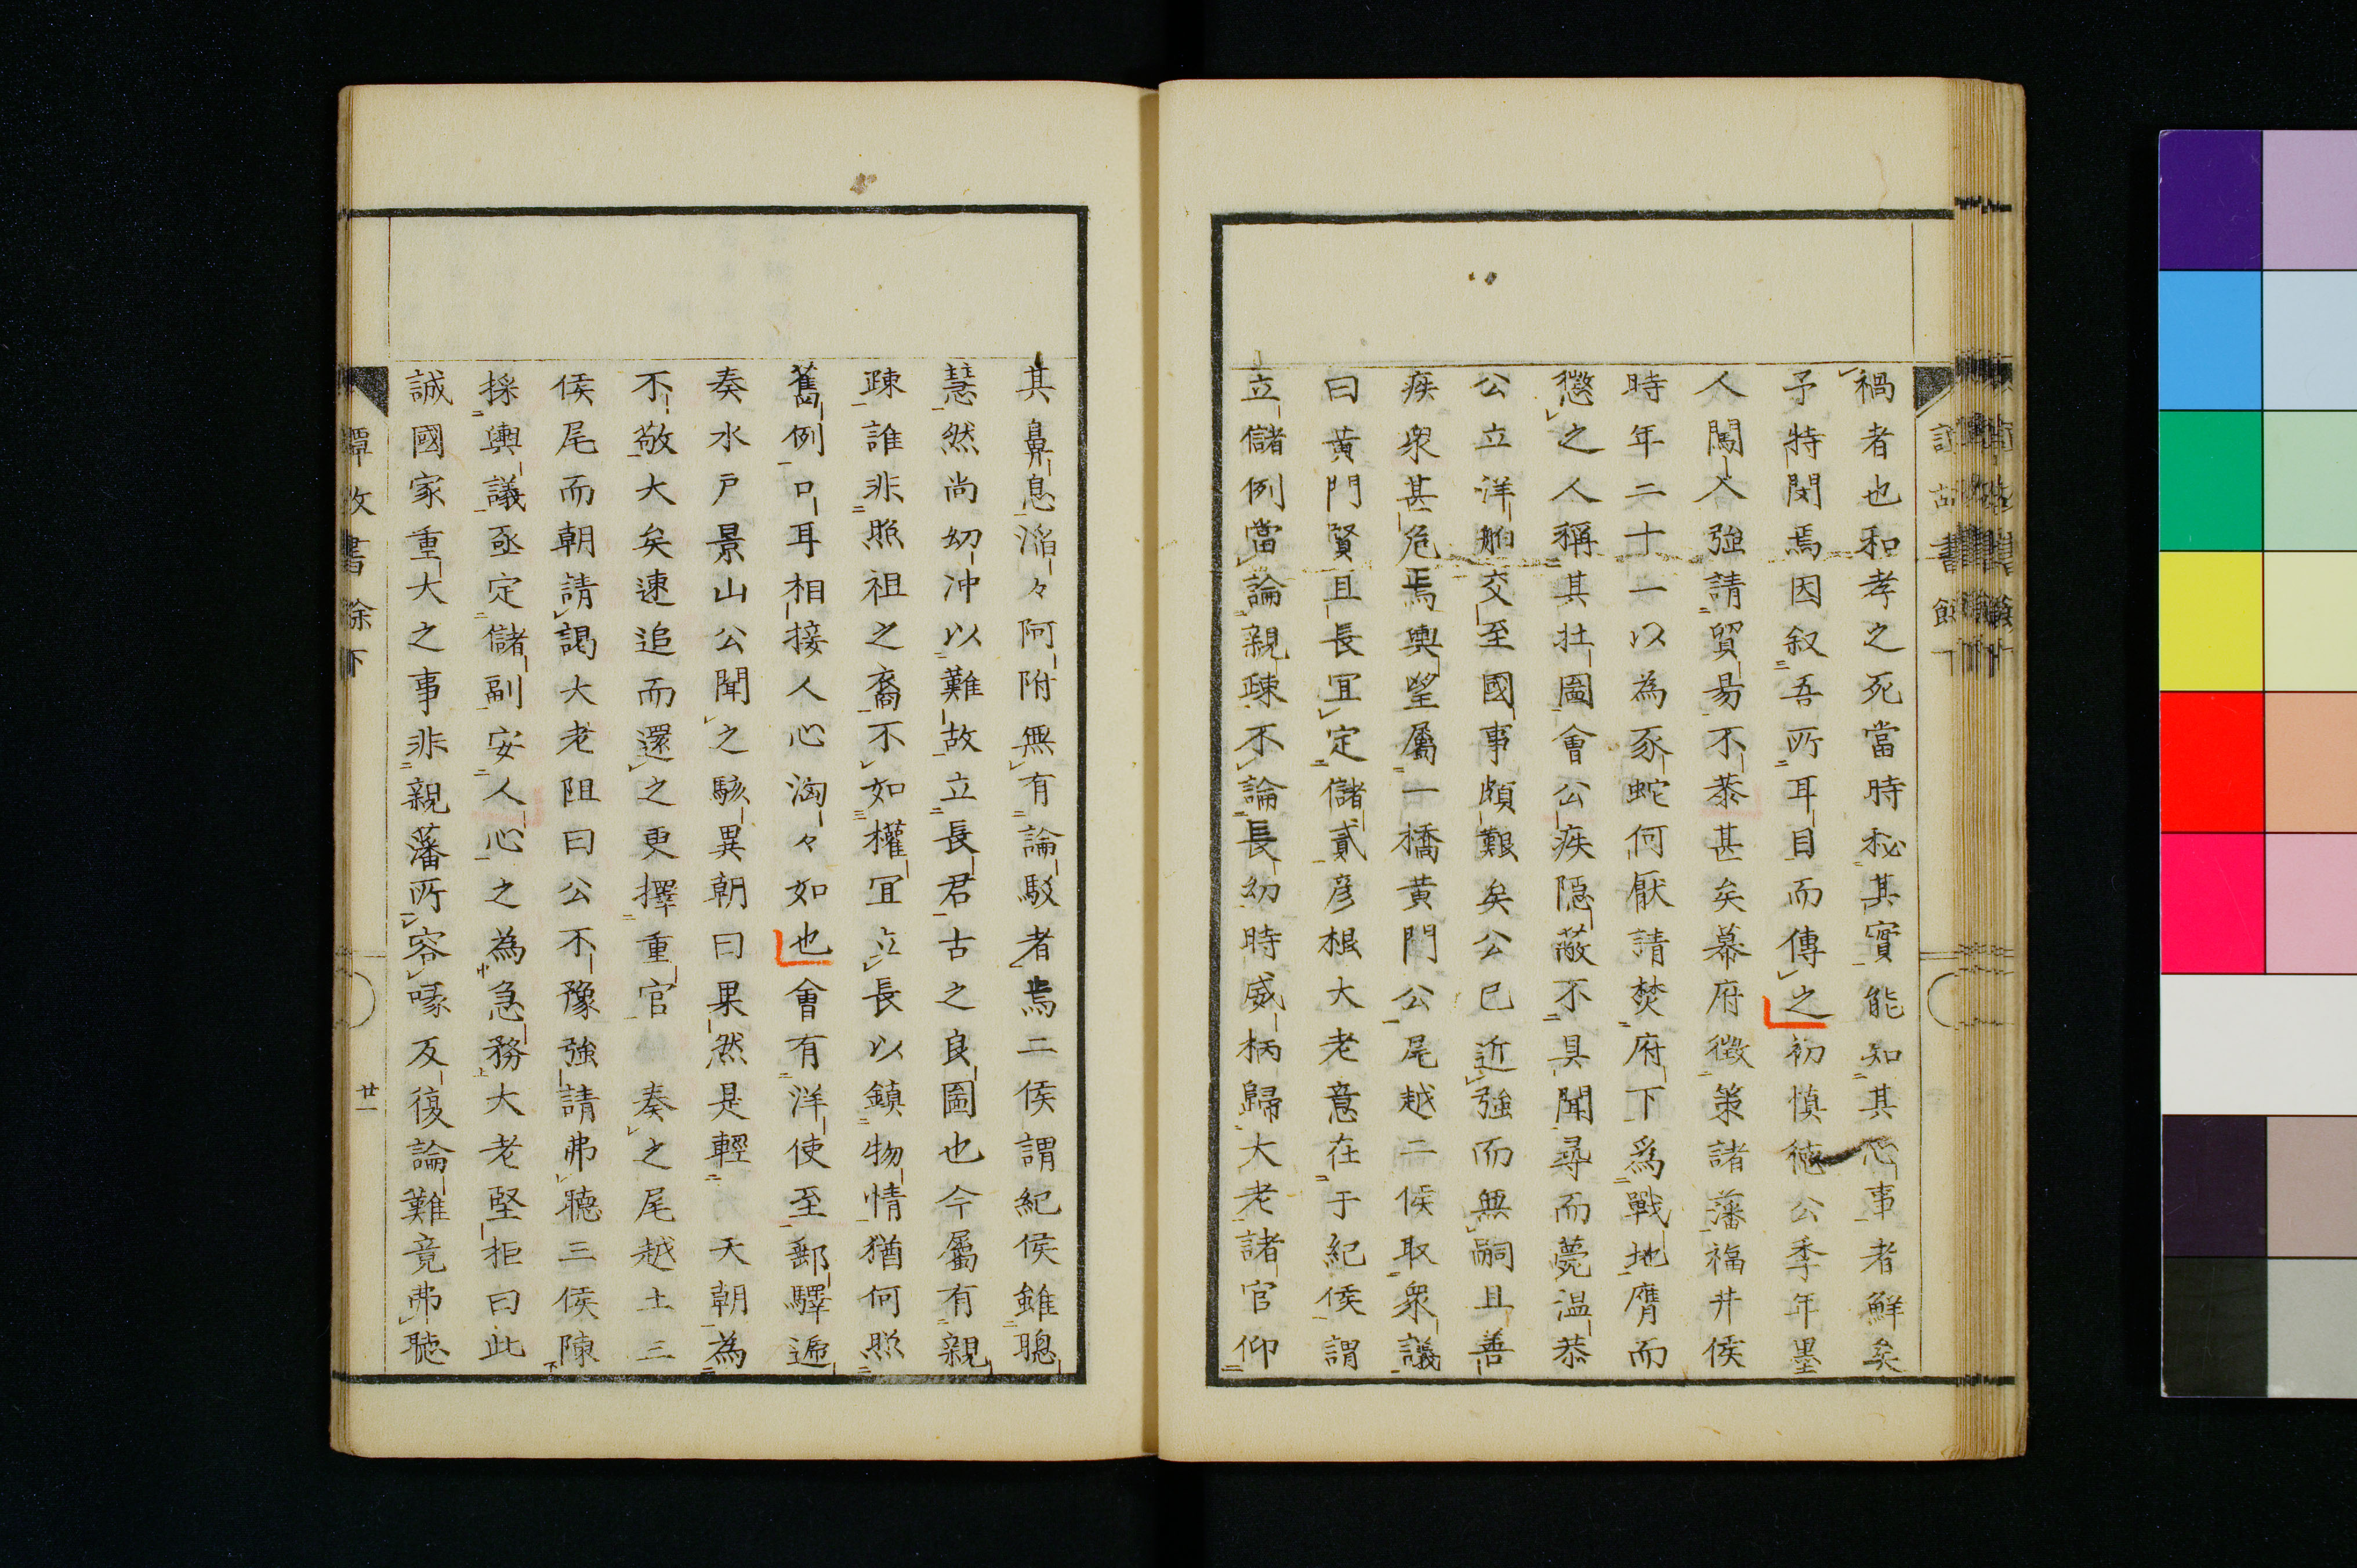 禍者也和孝之死當時秘其實能知其心事者鮮矣
予特閔焉因叙吾所耳目而傳之初慎徳公季年墨
人闖入強請貿易不恭甚矣幕府徴策諸藩福井侯
時年二十一以為豕蛇何厭請焚府下爲戰地膺而
懲之人稱其壮圖會公疾隠蔽不具聞尋而薨温恭
公立洋舶交至國事頗艱矣公已近強而無嗣且善
疾衆甚危焉輿望屬一橋黄門公尾越二侯取衆議
曰黄門賢且長冝定儲貳彦根大老意在于紀侯謂
立儲例當論親疎不論長幼時威柄歸大老諸官仰
其鼻息滔々阿附無有論駁者焉二侯謂紀侯雖聰
慧然尚幼冲以難故立長君古之良圖也今屬有親
疎誰非照祖之裔不如權冝立長以鎮物情猶何照
舊例口耳相接人心洶々如也會有洋使至郵驛遞
奏水戸景山公聞之駭異朝曰果然是輕 天朝為
不敬大矣速追而還之更擇重官 奏之尾越土三
侯尾而朝請謁大老阻曰公不豫強請弗聴三侯陳
採輿議亟定儲副安人心之為急務大老堅拒曰此
誠國家重大之事非親藩所容喙反復論難竟弗聴
書餘下
廿一